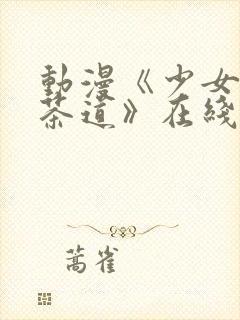 動漫《少女
茶道》在綫
蒿雀